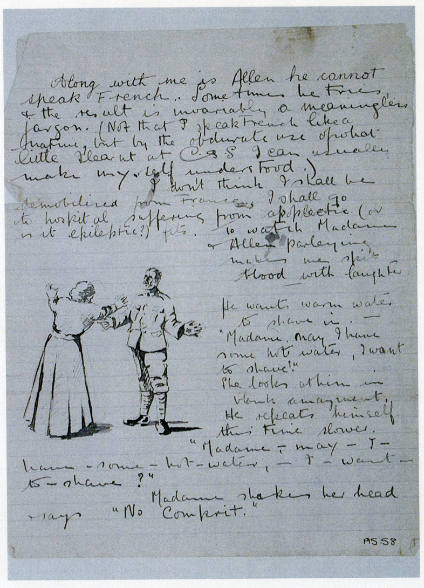 Along with me is Allen he cannot
speak French. Sometimes he tries,
& the result is invariably a meaningless
jargon. (Not that I speak French like a
, but by the obdurate use of what
little I learnt at C&S I can usually
make myself understood.)
I don't think I shall be
demobilized from France, I shall go
to hospital suffering from applectic (or
is it epileptic?) fits. To watch Madame
& Allen parleying
makes me spit
blood with laughter
He wants warm water
to shave in -
"Madame, may I have
some hot water, I want
to shave!"
She looks at him in
blank amazment.
He repeats himself
this time slower.
"Madame - may - I -
have - some - hot - water, - I - want -
to - shave?"
Madame shakes her head
& says "No Comprit."
AS58